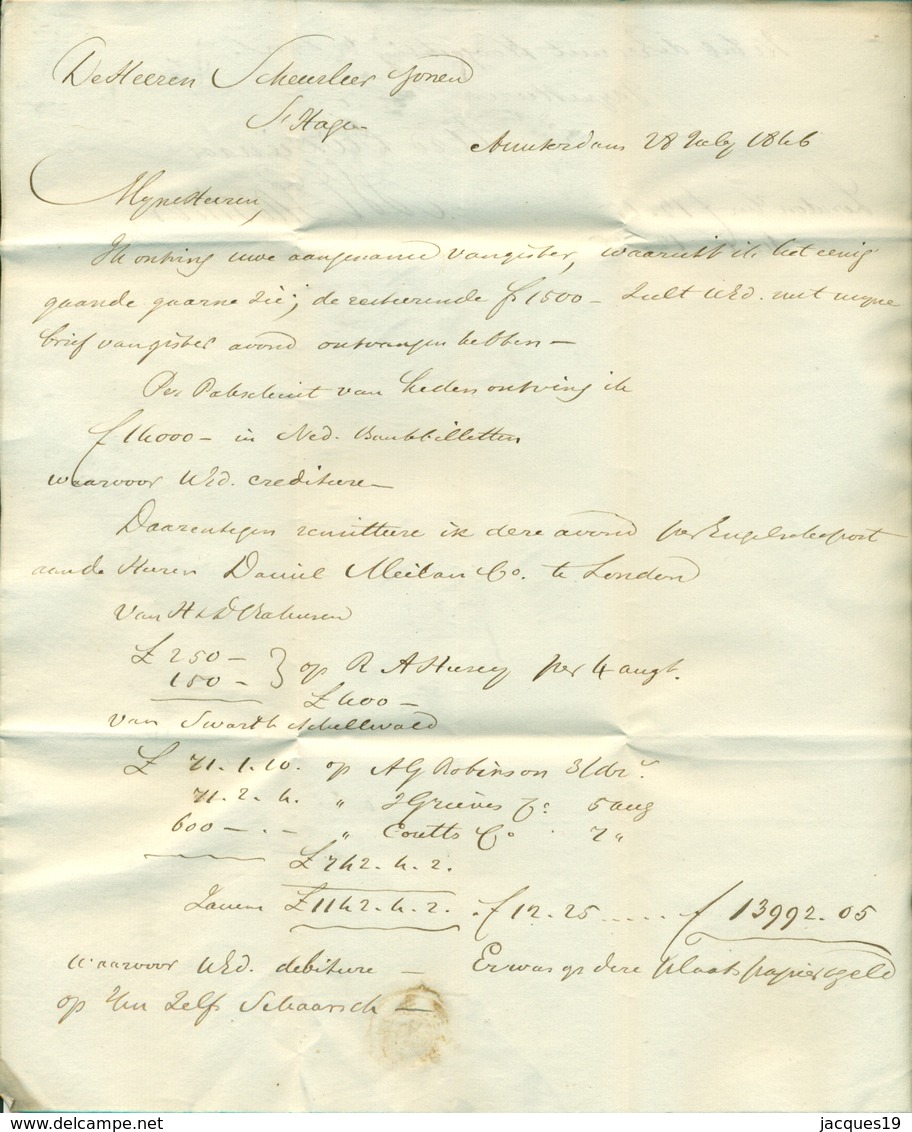 De Heeren Scheurleer & Zonen
s'Hage
Amsterdam 28 July 1846
Myne Heeren,
Ik ontving uwe aangename van gister, waaruit ik het eenig
gaande gaarne zie; de resteerende f 1500 - zult UEd. met myne
brief van gister avond ontvangen hebben -
Per Paketschuit van heden ontving ik
f 14000 - in Ned. Bankbilletten
waarvoor UEd. crediteere -
Daarentegen remitteere ik deze avond per Engelsche post
aan de Heeren Daniel & Co. te London
Van H & D
£ 250 -
150 - } op R A per 4 augt.
£ 400 -
van Swarth
£ 71.1.10. op A G Robinson 3/d
71.2.4. " J Grieves & Co 5 aug
600 - . - " Coutts & Co. 7 "
£ 742.4.2.
Zamen £ 1142.4.2. f 12.25 ..... f 13992.05
waarvoor UEd. debitere - Er was op deze plaats papier geld
op zelfs Schaarsch -
jacques19